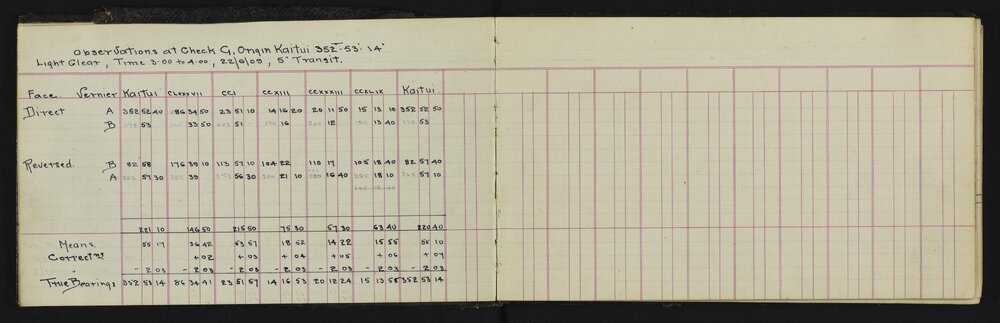 Observations at Check G, Origin Kaitui 352°-53'-14"
Light Clear, Time 3.00 to 4.00, 22/6/09, 5" Transit.
Face. Vernier Kaitui CLXXXVII CCI CCXIII CCXXXIII CCXLIX Kaitui
Direct A 352 52 40 86 34 50 23 51 10 14 16 20 20 11 50 15 13 10 352 52 50
B 172 53 33 50 51 16 12 13 40 172 53
Reversed. B 82 58 176 39 10 113 57 10 104 22 110 17 105 18 40 82 57 40
A 57 30 39 56 30 21 10 16 40 18 10 57 10
221 10 146 50 215 50 75 30 57 30 63 40 220 40
Means 55 17 36 42 53 57 18 52 14 22 15 55 55 10
Correctns + 02 + 03 + 04 + 05 + 06 + 07
- 2 03 - 2 03 - 2 03 - 2 03 - 2 03 - 2 03 - 2 03
True Bearings 352 53 14 86 34 41 23 51 57 14 16 53 20 12 24 15 13 58 352 53 14